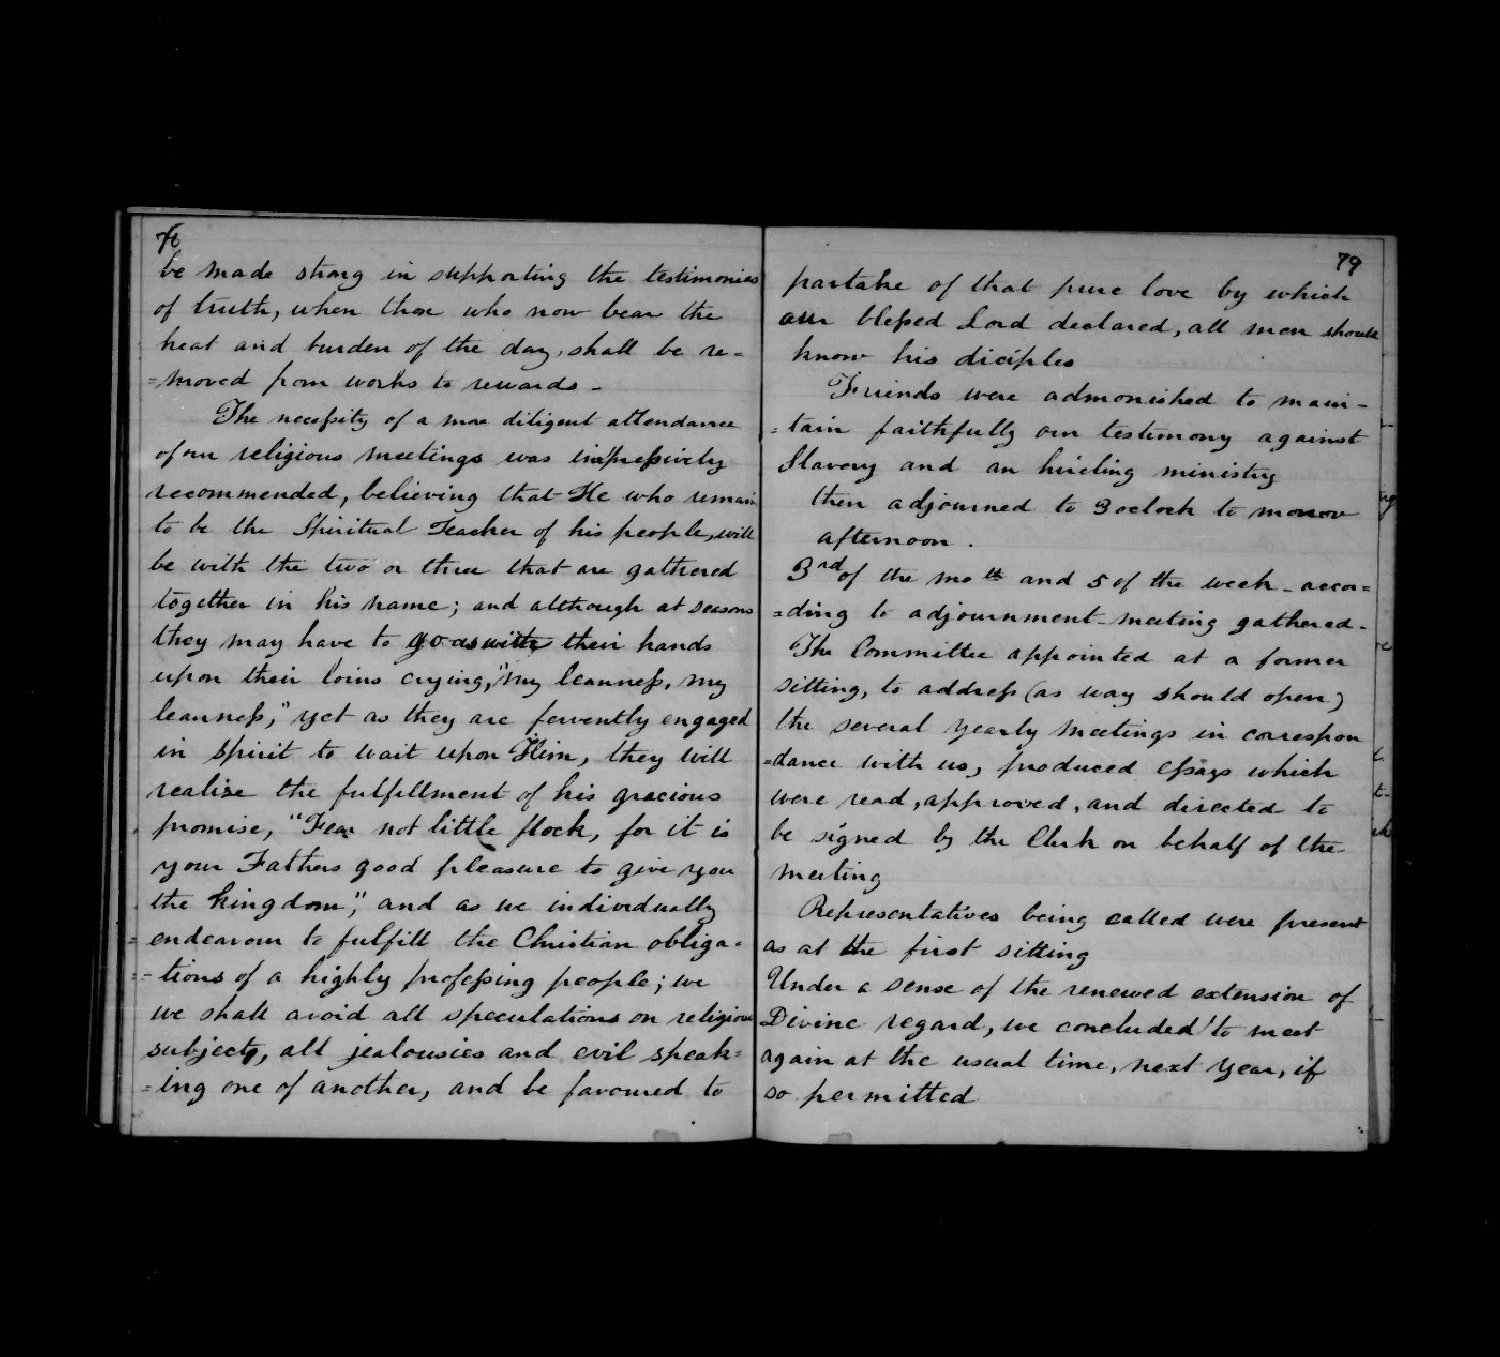 be made strong in supporting the testimonies
of truth, when those who now bear the
heat and burden of the day, shall be re-
=moved from works to rewards -
The necessity of a more diligent attendance
of our religious meetings was impressively
recommended, believing that He who remain
to be the Spiritual Teacher of his people, will
be with the two or three that are gathered
together in his name; and although at seasons
they may have to go as with their hands
upon their loins crying, "my leanness, my
leanness," yet as they are fervently engaged
in spirit to wait upon Him, they will
realize the fulfillment of his gracious
promise, "Fear not little flock, for it is
your Fathers good pleasure to give you
the kingdom", and as we individually
endeavour to fulfill the Christian obliga-
=tions of a highly professing people; we
we shall avoid all speculations on religious
subjects, all jealousies and evil speak=
=ing one of another, and be favoured to
79
partake of that pure love by which
our blessed Lord declared, all men should
know his diciples
Friends were admonished to main-
=tain faithfully our testimony against
Slavery and an hireling ministry
then adjourned to 3 oclock to morrow
afternoon.
3rd of the mo th and 5 of the week - accor=
=ding to adjournment - meeting gathered -
The Committee appointed at a former
sitting, to address (as way should open)
the several yearly meetings in correspon
=dance with us, produced essays which
were read, approved, and directed to
be signed by the Clerk on behalf of the
meeting
Representatives being called were present
as at the first sitting
Under a sense of the renewed extension of
Divine regard, we concluded to meet
again at the usual time, next year, if
so permitted